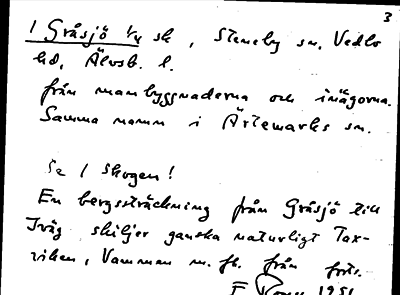 3
1 Gråsjö 1/4 sk, Steneby sn, Vedbo
hd, Älvsb. l.
från manbyggnaderna och inägorna.
Samma namn i Ärtemarks sn.
Se 1 skogen!
En bergssträckning från Gråsjö till
Iväg skiljer ganska naturligt Tax-
viken, Vamman m. fl. från
F 1951